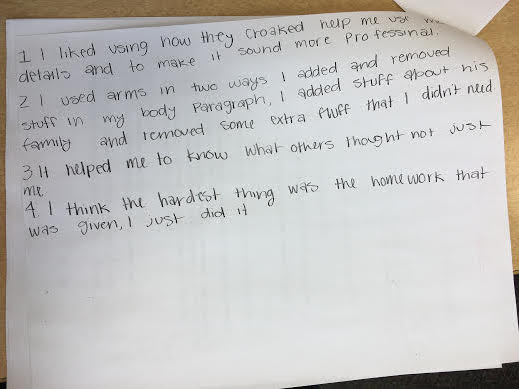 1 I liked using how they croaked help me use
details and to make it sound more Professinal.
2 I used arms in two ways I added and removed
stuff in my body Paragraph, I added stuff about his
family and removed some extra fluff that I didn't need
3 It helped me to know what others thought not just
me
4. I think the hardest thing was the homework that
was given, I just did it